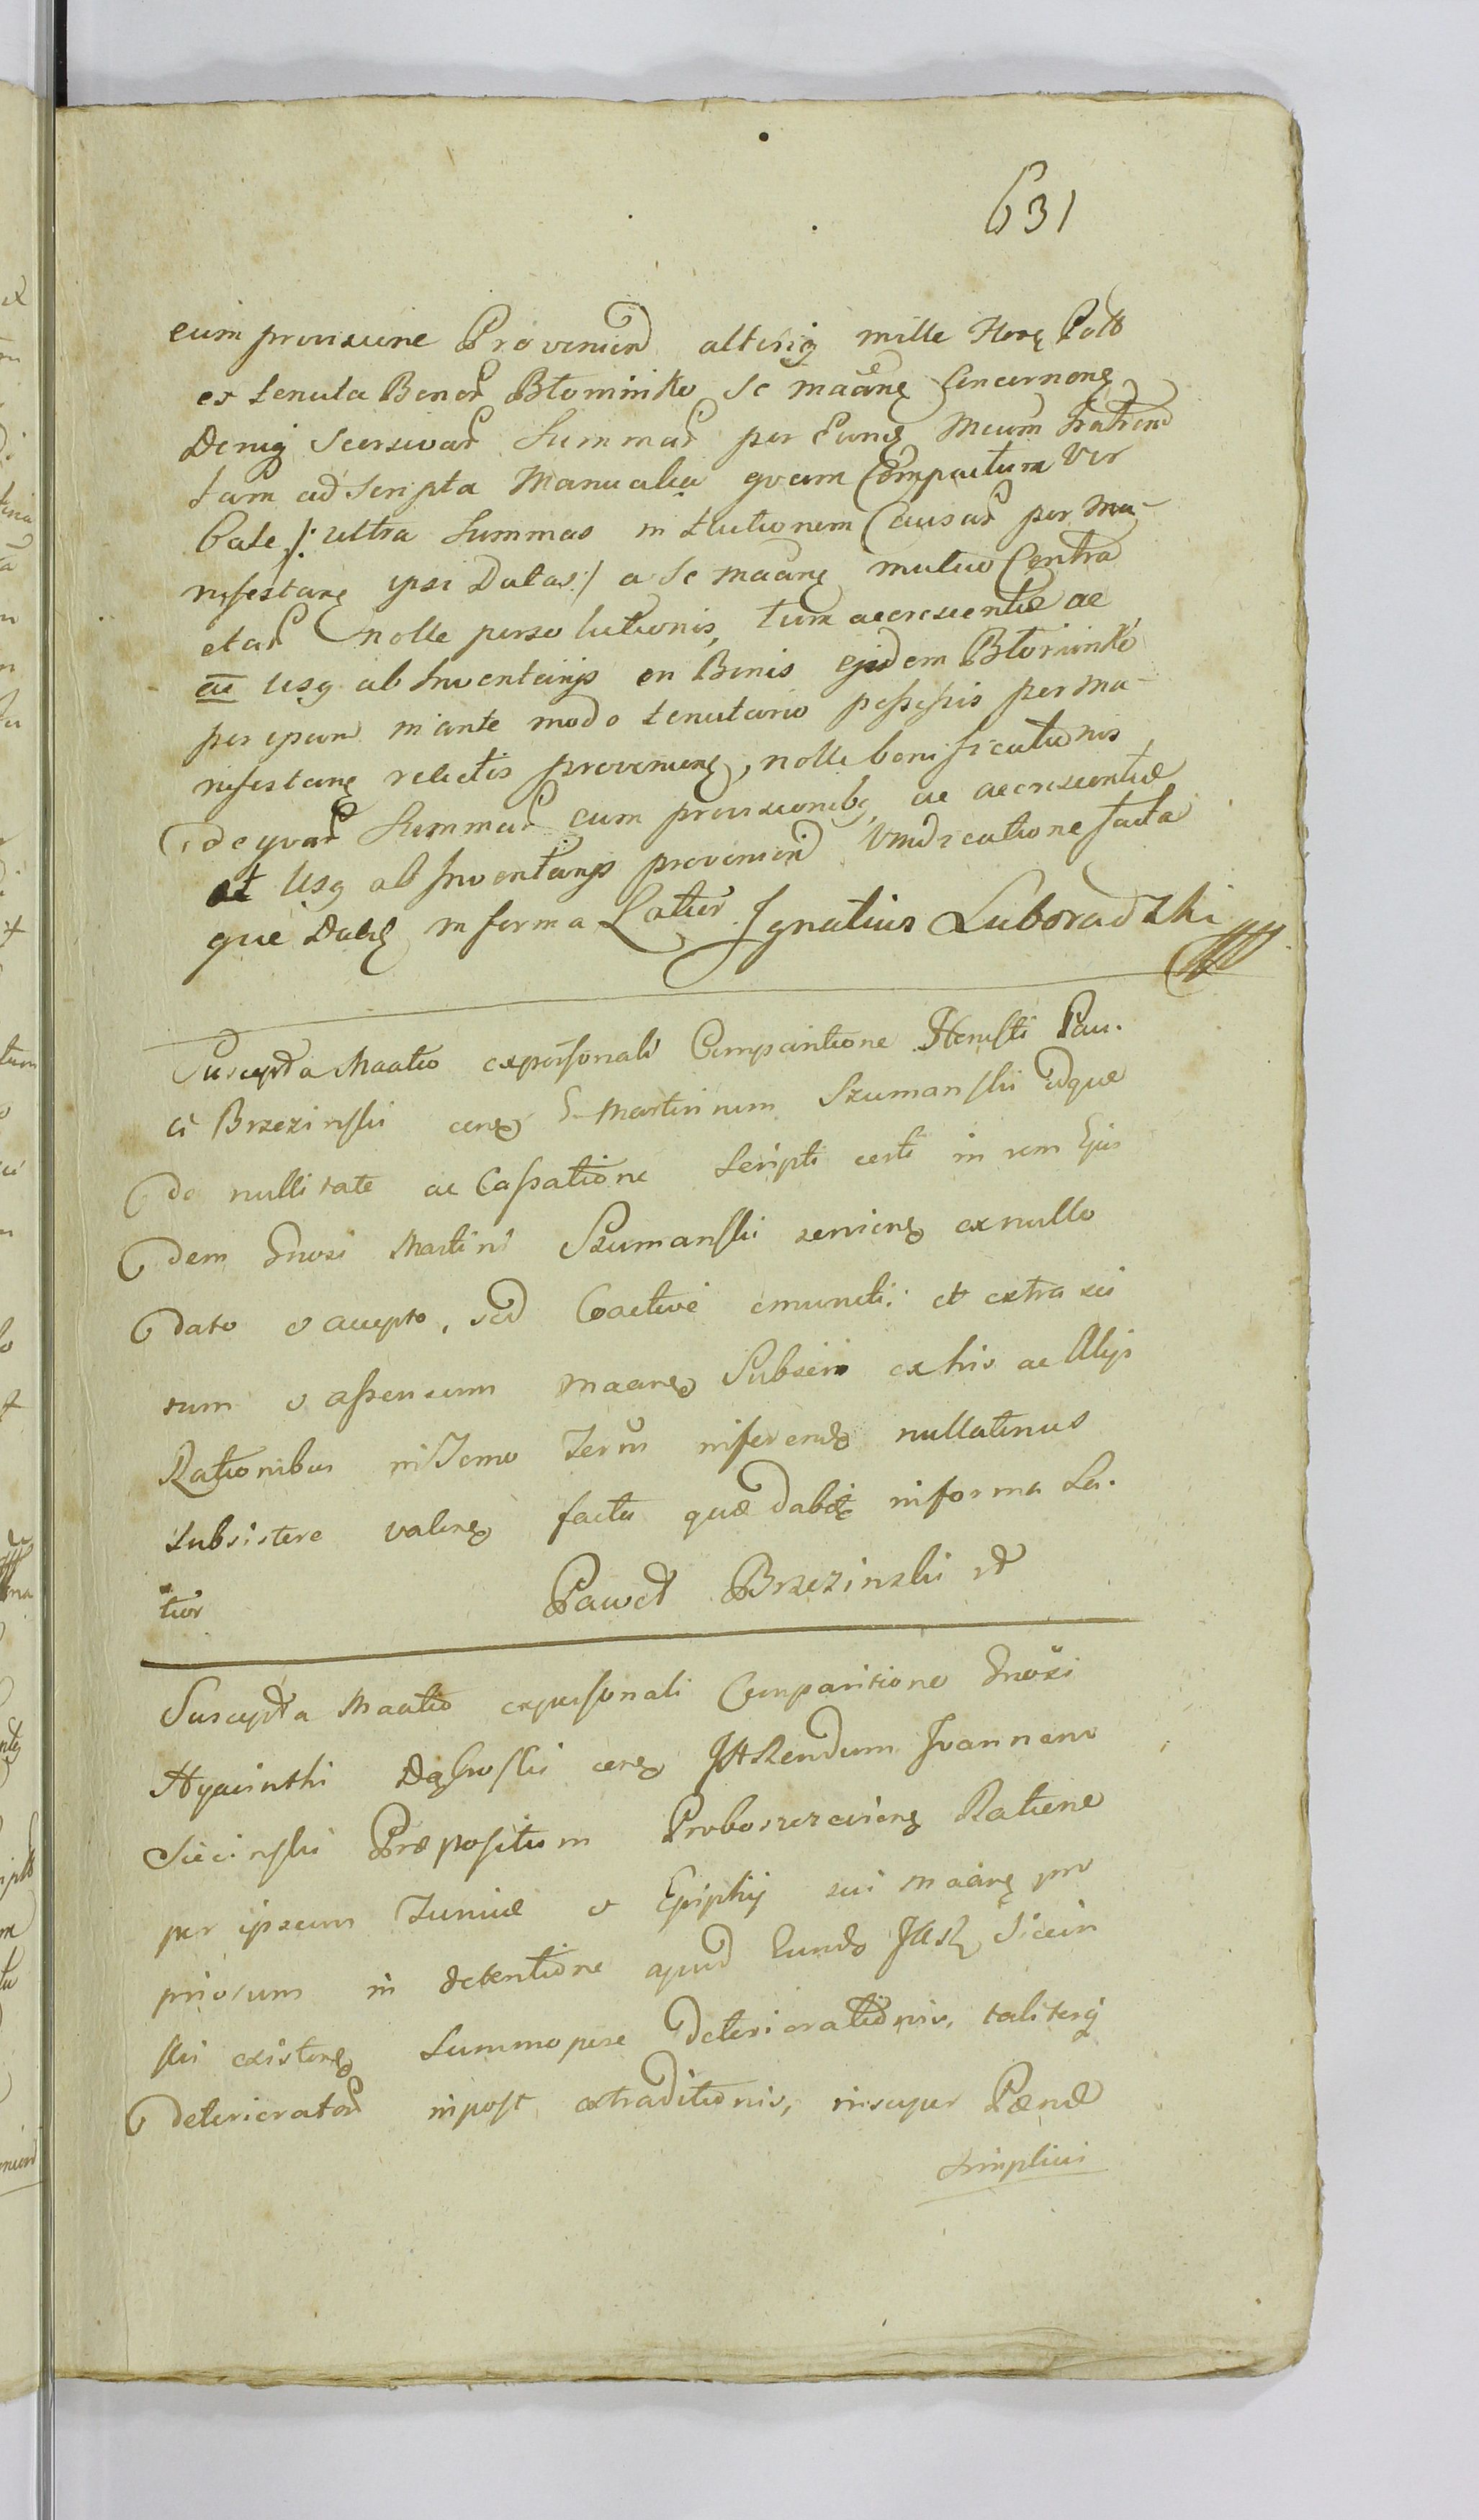 631
cum provisione Provenien alteriq mille Flor Poll
ex tenuta Bonor Błominko se maane Concernen
Deniq Seorsivar Summar per Eund Meum Fratrem
tam ad Scripta Manualia quam Compactum Ver
bale /: ultra Summas in Elutionem Causar per Ma-
nifestane ipsi Datas :/ a Se maane mutuo Contra
ctar nolle persolutionis, tum accrescentiæ ac
ac Usq ab Inventarijs en Bonis ejusdem Błominko
per ipsum in ante modo tenutario possessis per ma-
nifestane relictis provenien, nolle bonificationis
de quar Summar cum provisionibq ac accrescentiæ
et Usq ab Inventarijs provenien Vindicatione facta
que Dabit in forma Latior. Ignatius Luboradzki
Suscepta Maatio ex personali Comparitione Honesti Pau-
li Brzezinski cone G Martinum Szumanski idque
de nullitate ac Cassatione Scripti certi in rem Ejus
dem Gnosi Martini Szumanski servien ex nullo
dato & accepto, sed Coactive emuncti: et extra sci
tum & assensum maane Subseri ex his ac Alijs
Rationibus in Termo Jeris inferend nullatenus
subsistere valen facta quæ dabit in forma La-
tior Paweł Brzezinski
Suscepta Maatio ex personali Comparitione Gnosi
Hyacinthi Dąbroski cone Rendum Joannem
Siecinski Præpositum Proboszczeviens Ratione
per ipsum Tunicæ & Ephippij sui maane pro
priorum in detentione apud Eund Siecin
ski existen Summopere deteriorationis, taliterq
deteriorator in post extraditionis, insuper Pænæ
simplicis